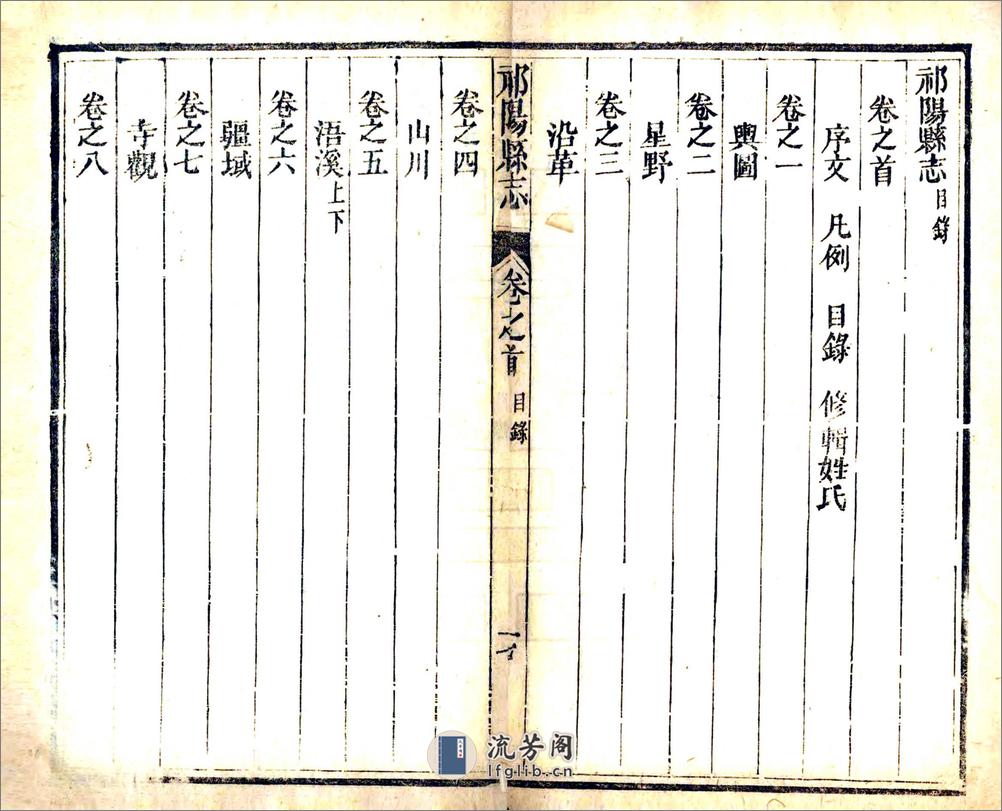 祁陽縣志目錄
卷之首
序文 凡例 目錄 修輯姓氏
卷之一
輿圖
卷之二
星野
卷之三
沿革
祁陽縣志 卷之首 目錄 一
卷之四
山川
卷之五
浯溪上下
卷之六
疆域
卷之七
寺觀
卷之八
流芳阁
lfglib.cn